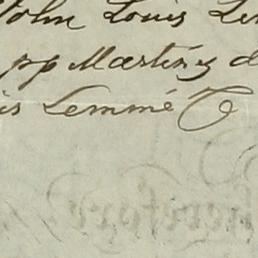 John Louis Le
pp Martinez d
is Lemmé